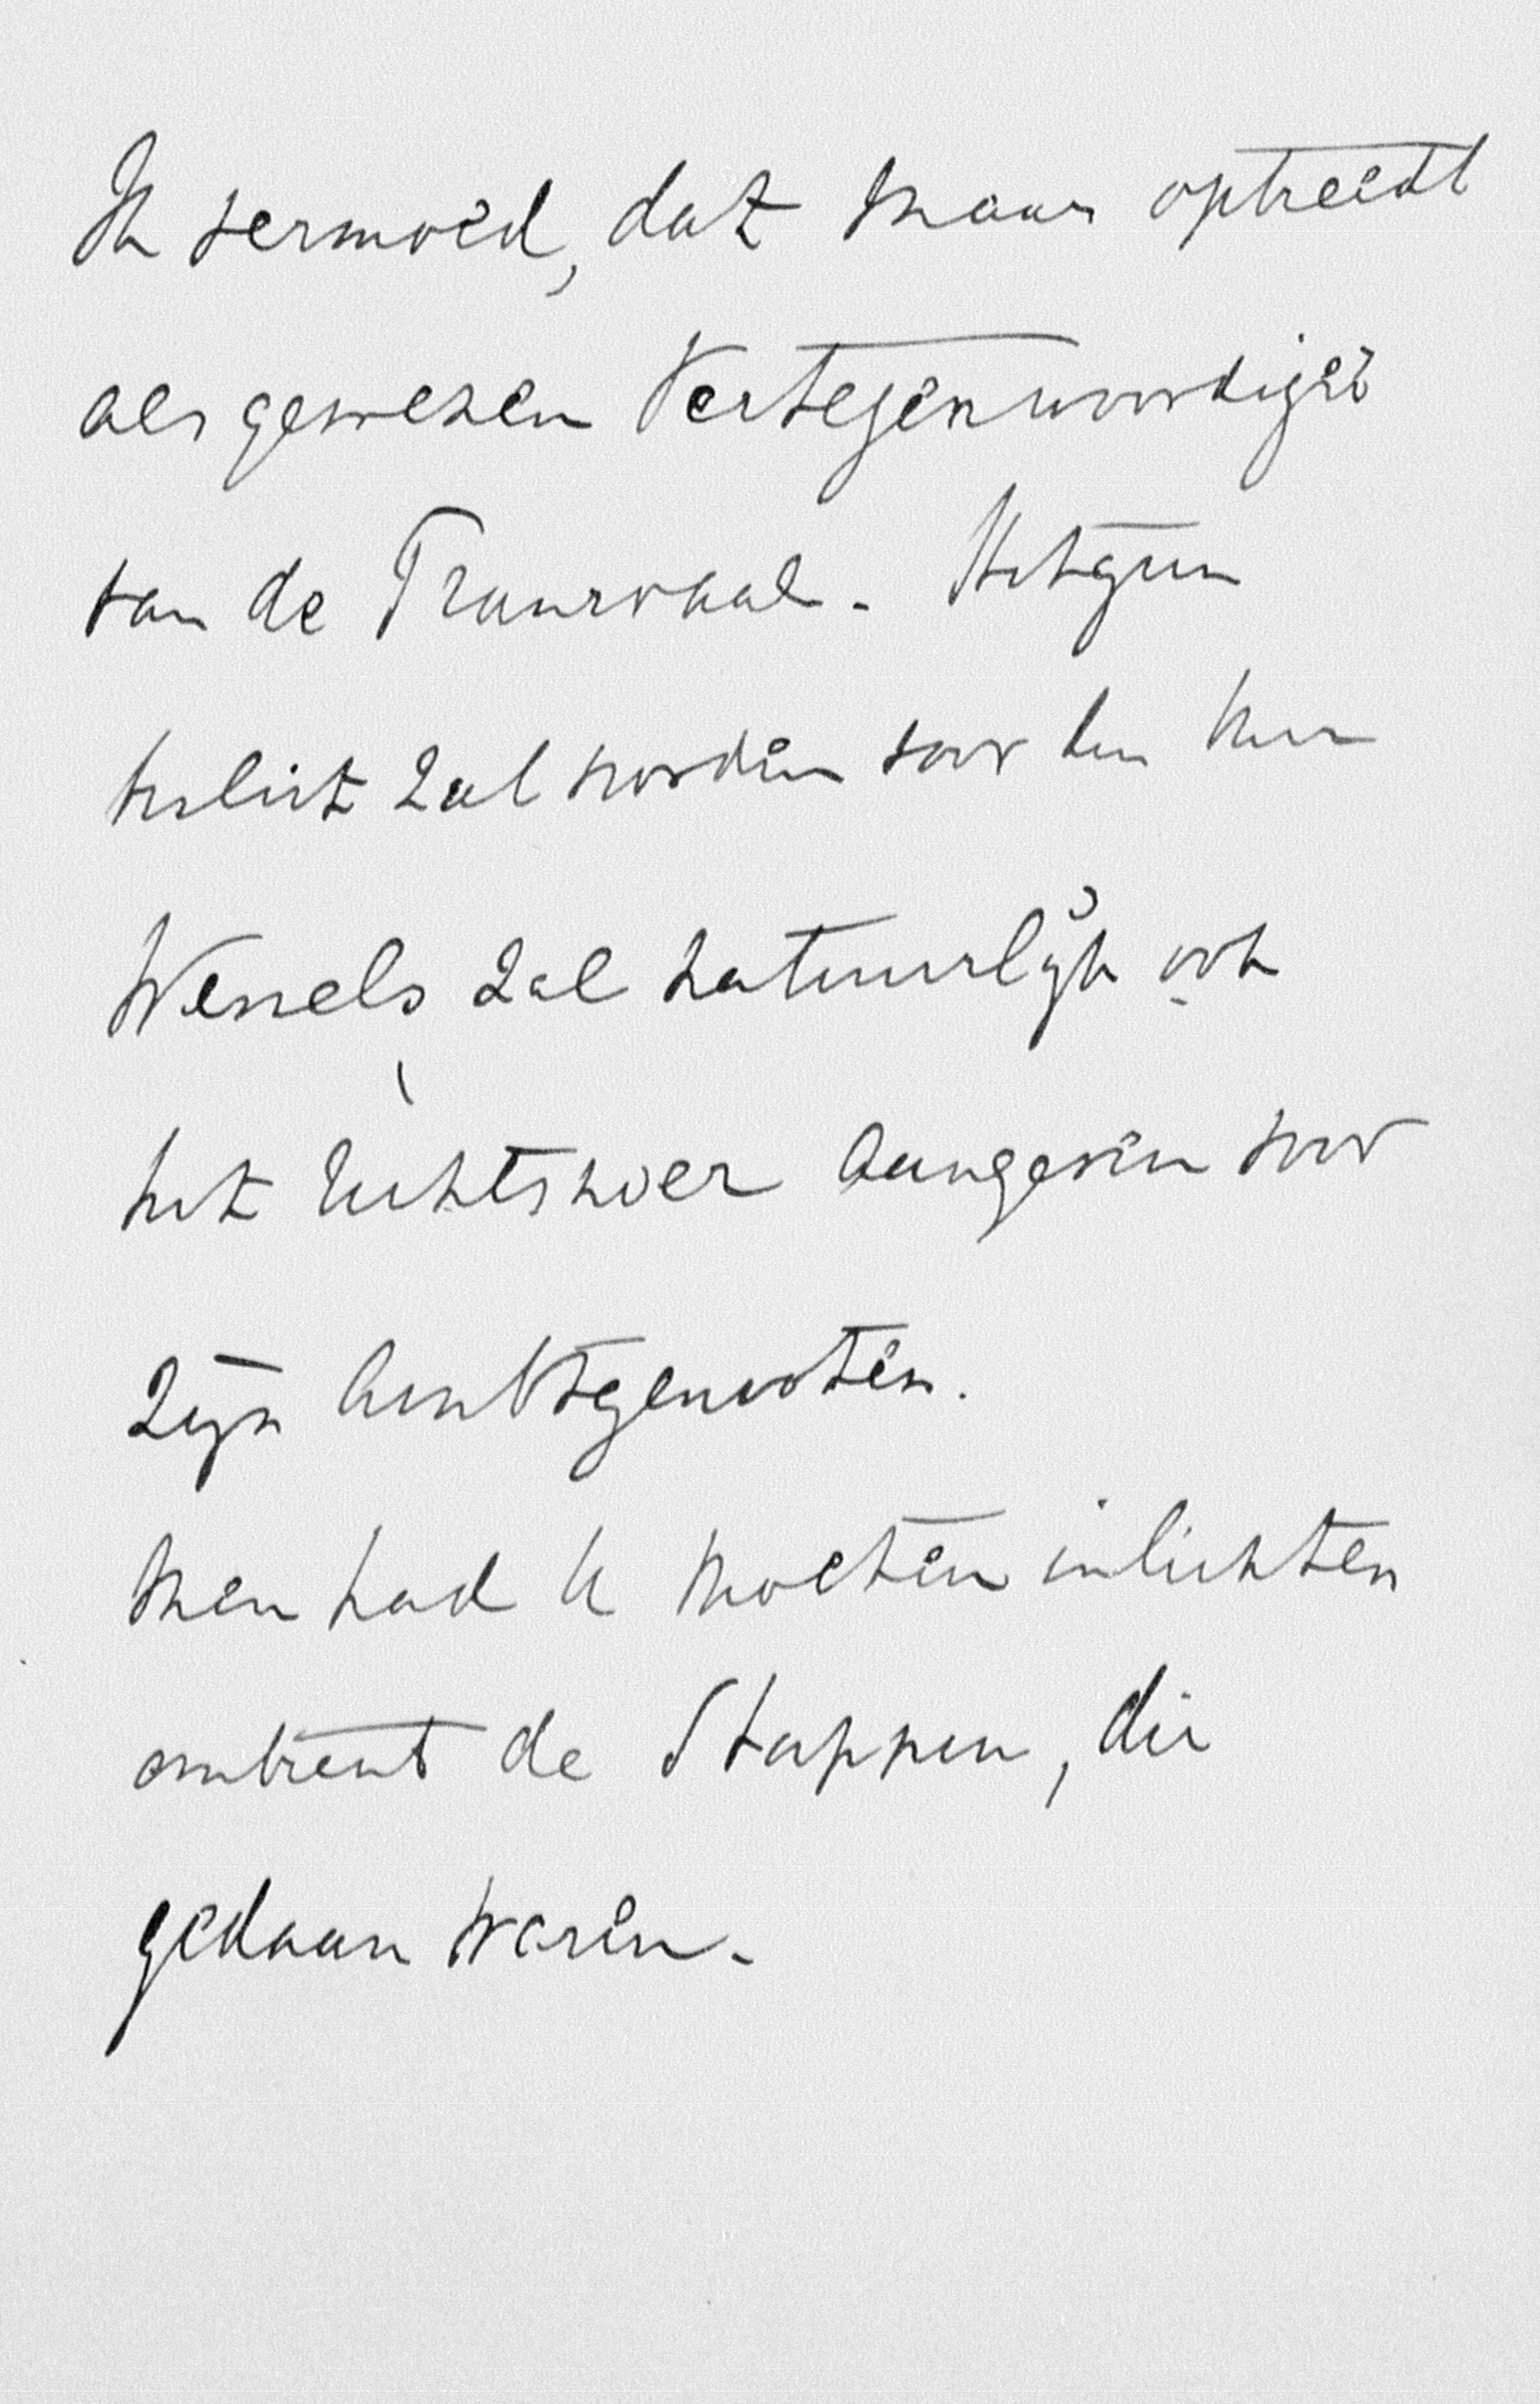 Ik vermoed, dat Maar optreedt
als gewezen Vertegenwoordiger
van de Transvaal. Hetgeen
beslist zal worden voor den Heer
Wessels zal natuurlijk ook
het richtsnoer aangeven voor
zijn Ambtgenooten.
Men had U moeten inlichten
omtrent de Stappen, die
gedaan waren.